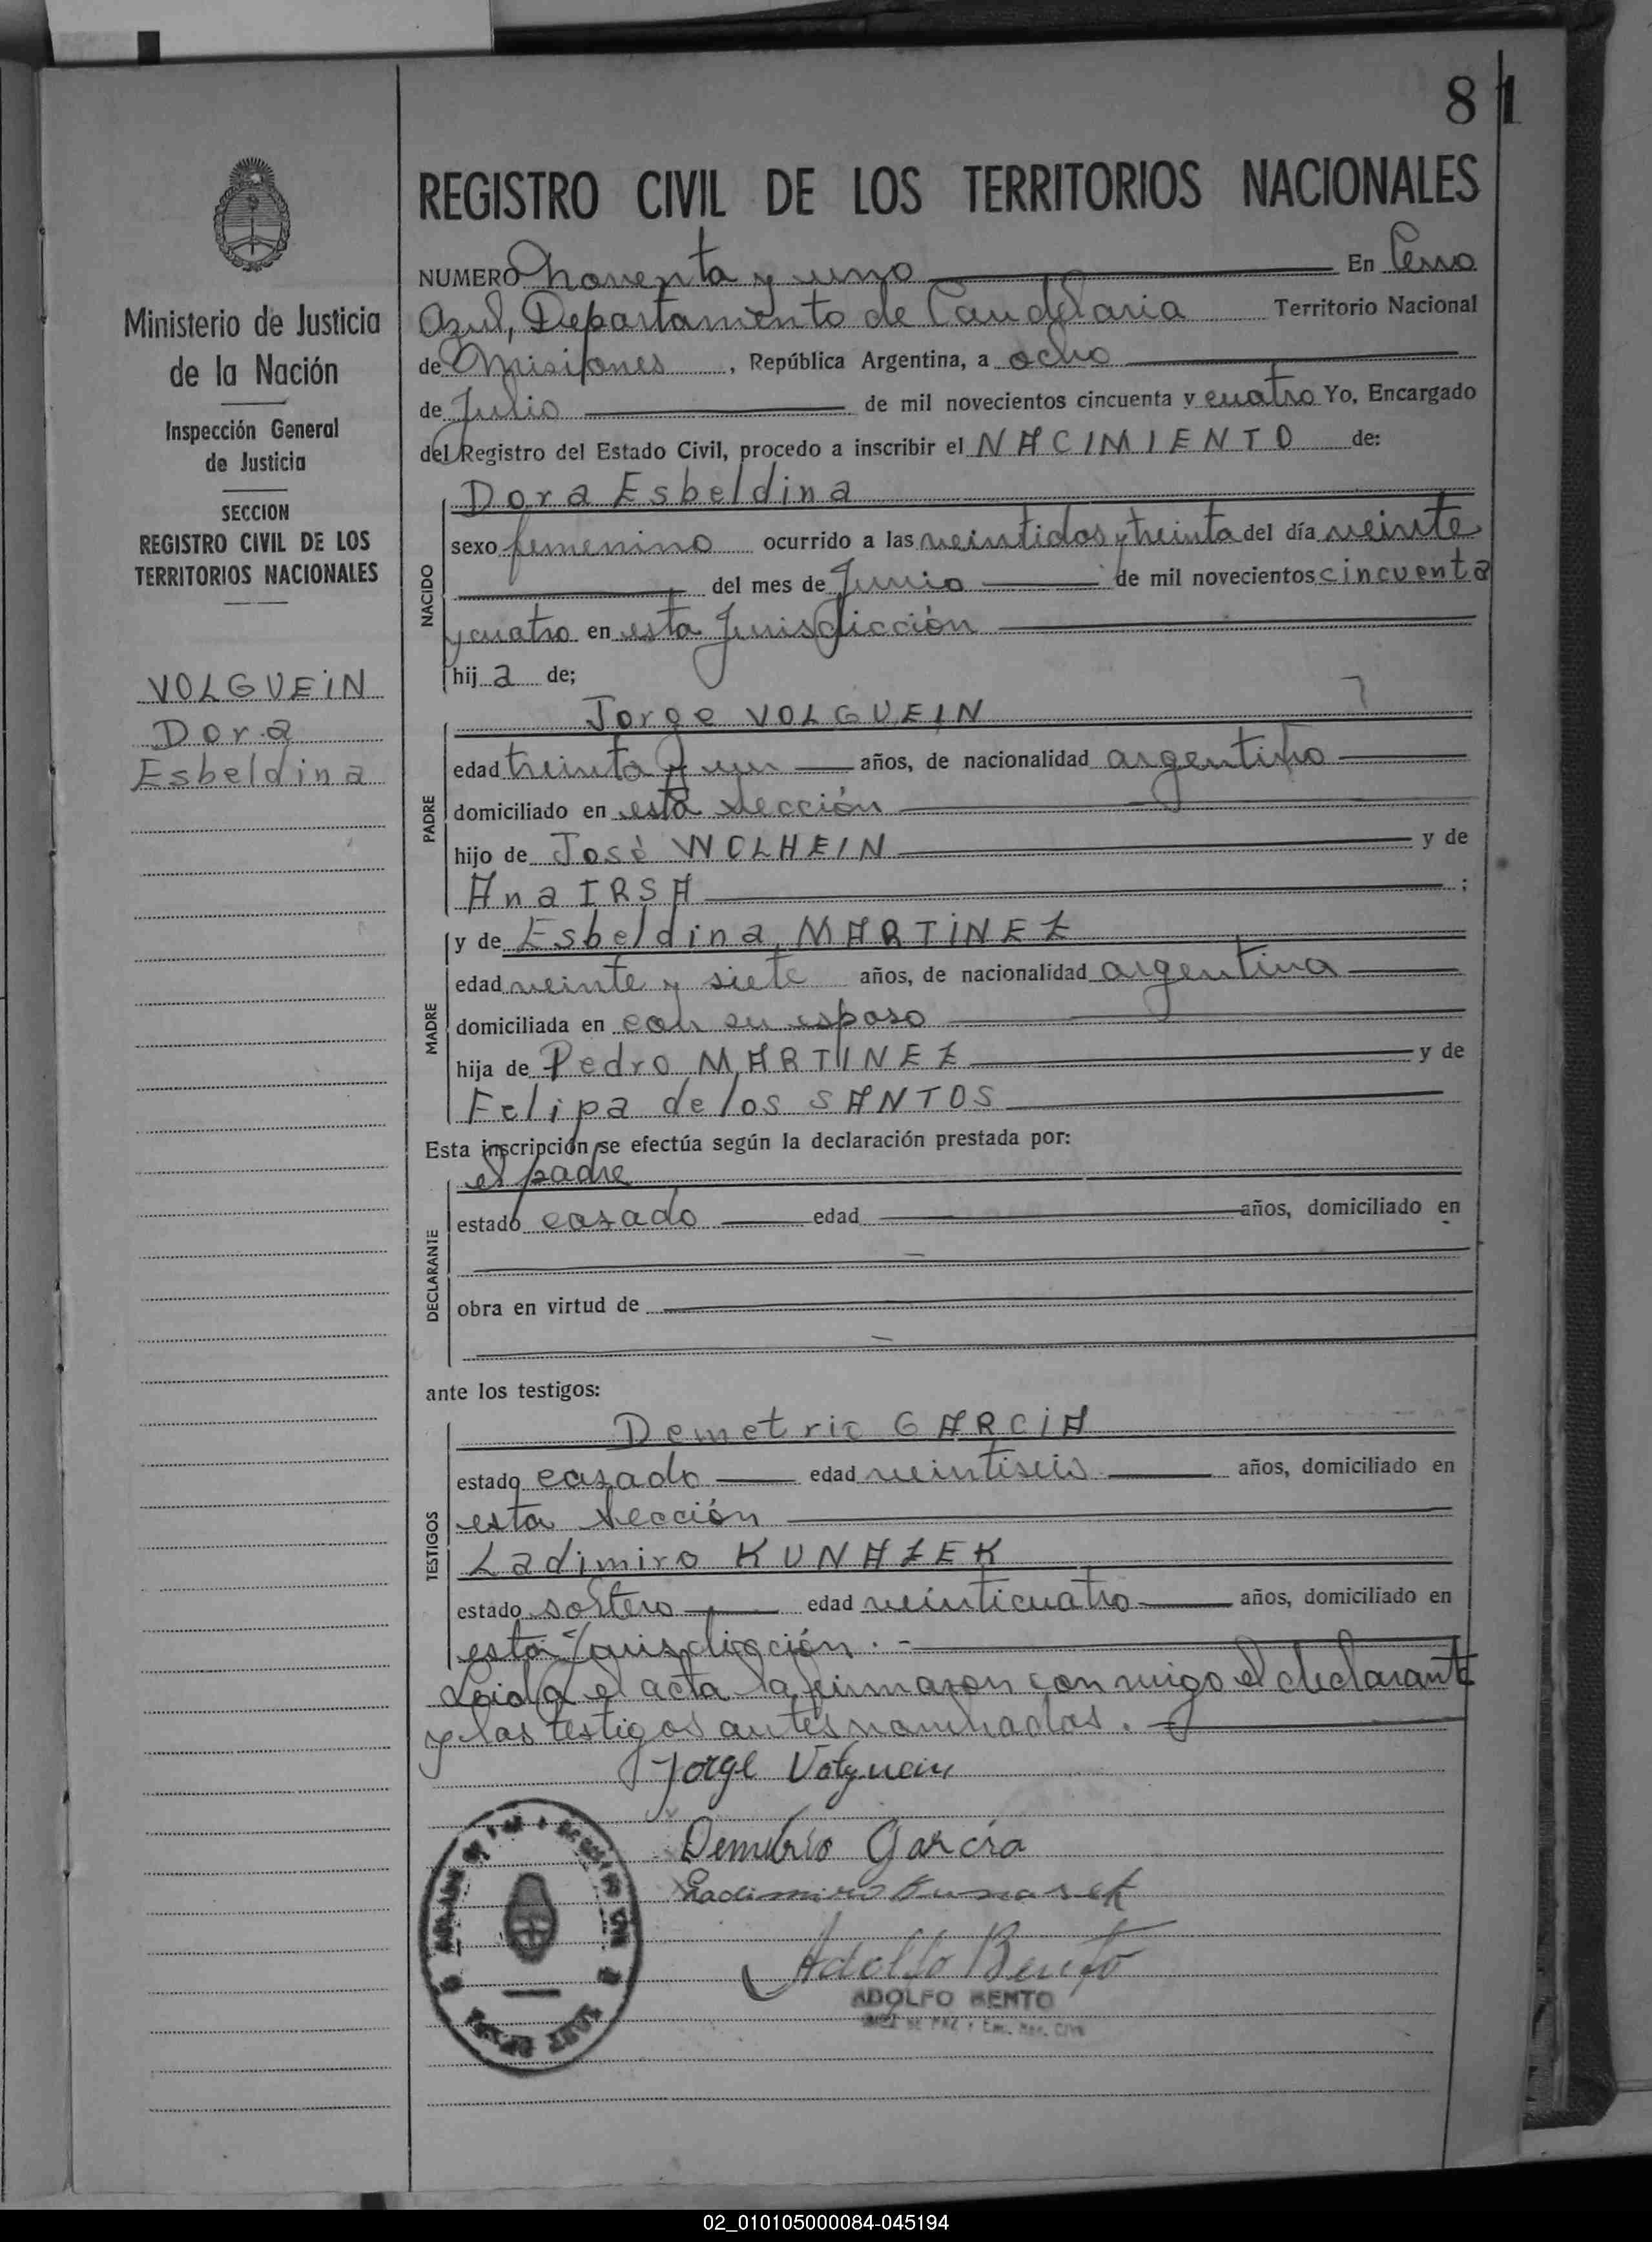 81
REGISTRO CIVIL DE LOS TERRITORIOS NACIONALES
NUMERO Noventa y uno En Cerro
Azul, Departamento de Candelaria Territorio Nacional
de Misiones, República Argentina, a ocho
de Julio de mil novecientos cincuenta y cuatro Yo, Encargado
del Registro del Estado Civil, procedo a inscribir el NACIMIENTO de:
Dora Esbeldina
sexo femenino ocurrido a las veintidos y treinta del día veinte
del mes de Junio de mil novecientos cincuenta
y cuatro en esta Jurisdicción
hij a de;
NACIDO
Jorge VOLGUEIN
edad treinta y un años, de nacionalidad argentino
domiciliado en esta sección
hijo de José WOLHEIN y de
Ana IRSA ;
PADRE
y de Esbeldina MARTINEZ
edad veinte y siete años, de nacionalidad argentina
domiciliada en con su esposo
hija de Pedro MARTINEZ y de
Felipa de los SANTOS
MADRE
Esta inscripción se efectúa según la declaración prestada por:
el padre
estado casado edad años, domiciliado en
obra en virtud de
DECLARANTE
ante los testigos:
Demetrio GARCIA
estado casado edad veintiseis años, domiciliado en
esta sección
Ladimiro KUNAZEK
estado soltero edad veinticuatro años, domiciliado en
esta jurisdicción. -
TESTIGOS
Leida el acta la firmaron conmigo el declarante
y los testigos antes nombrados. -
Jorge Volguein
Demetrio García
Ladimiro Kunasek
Adolfo Bento
ADOLFO BENTO
JUEZ DE PAZ y Enc. Reg. Civil
Ministerio de Justicia
de la Nación
Inspección General
de Justicia
SECCION
REGISTRO CIVIL DE LOS
TERRITORIOS NACIONALES
VOLGUEIN
Dora
Esbeldina
02_010105000084-045194